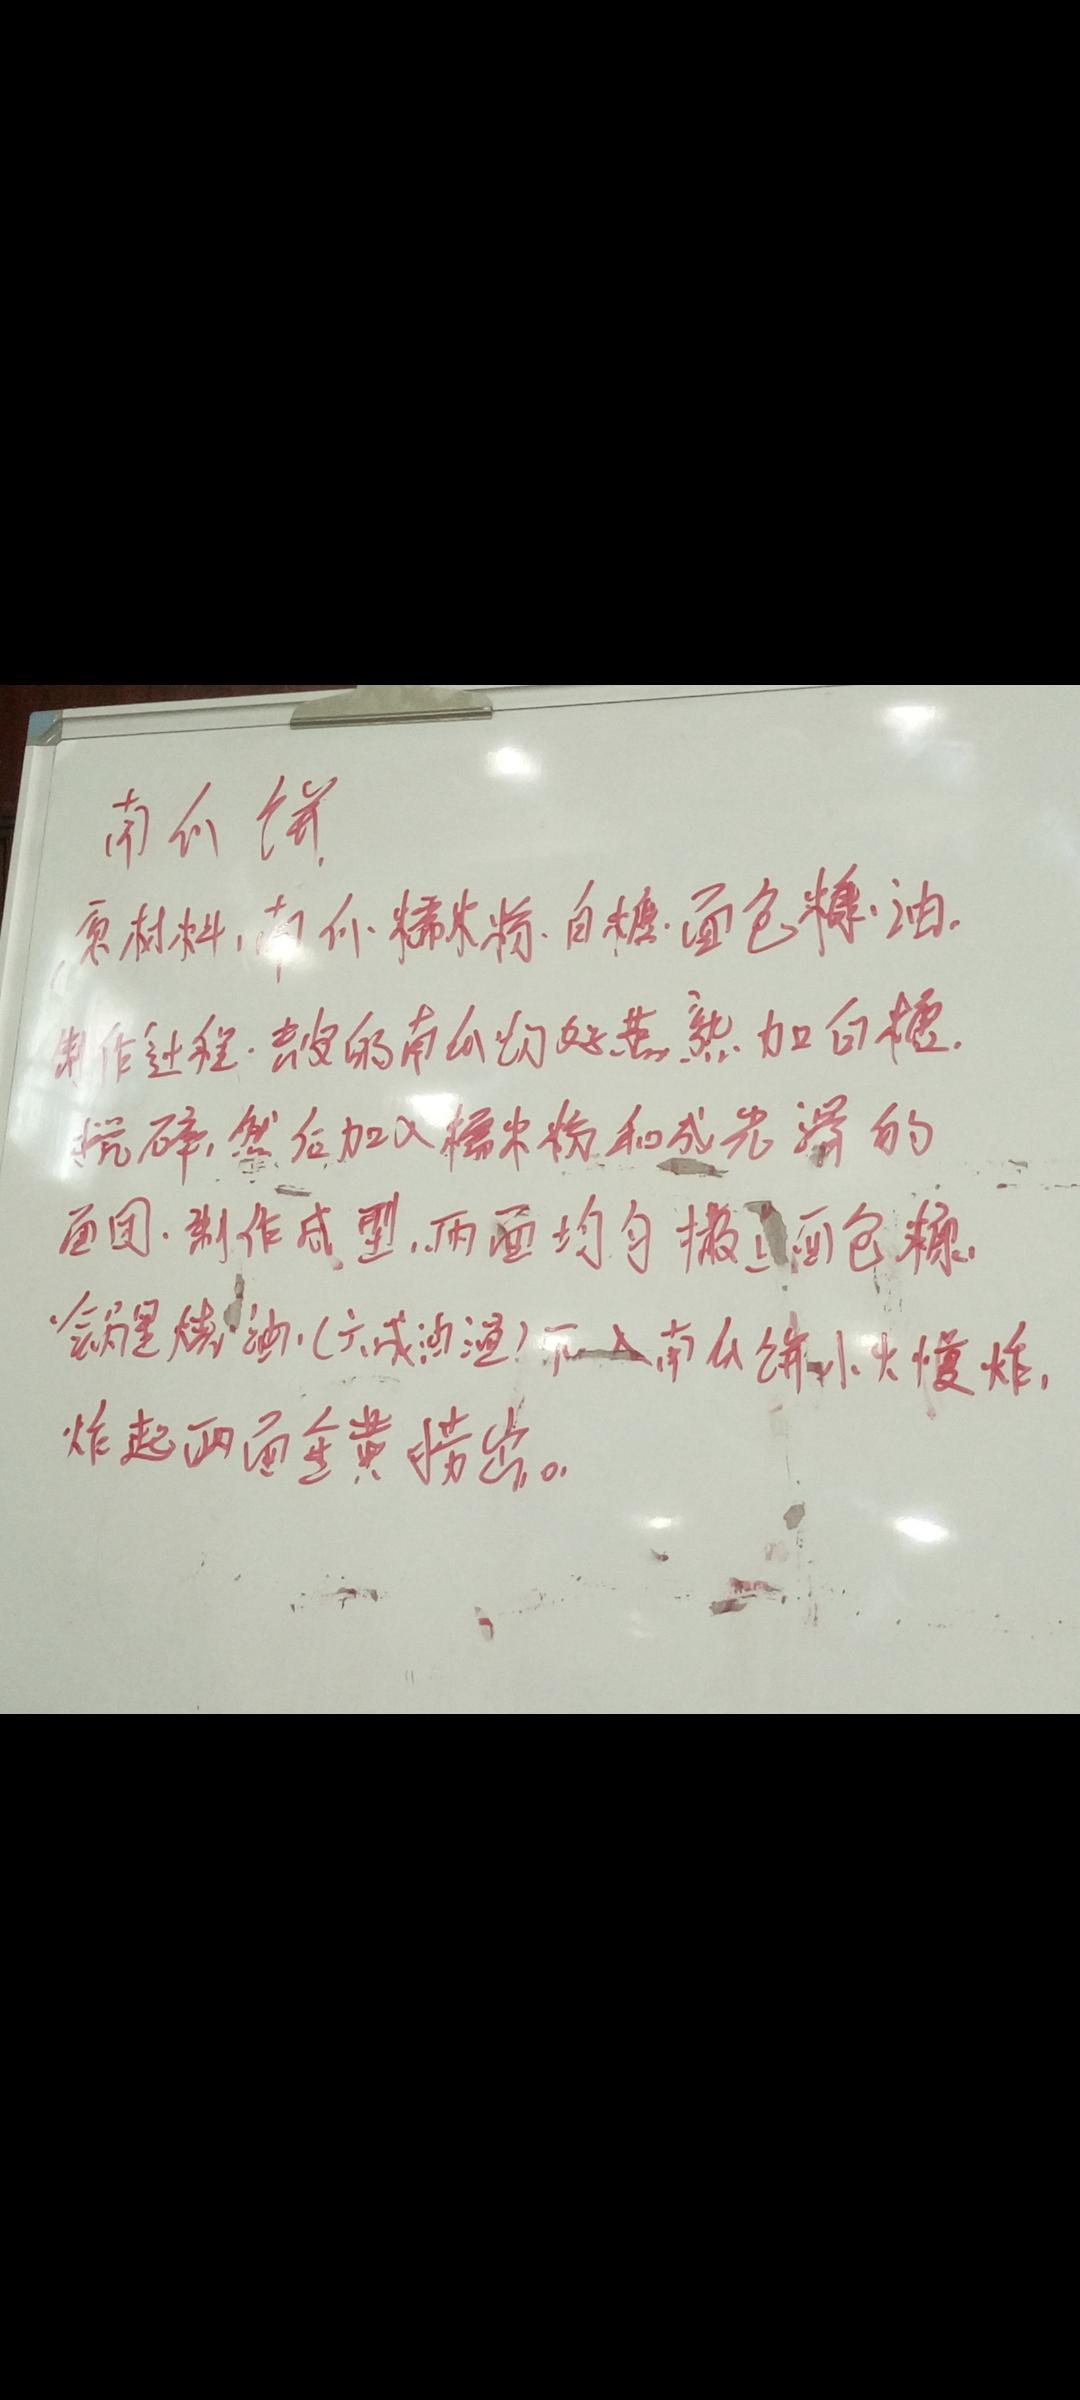 南瓜饼
原材料，南瓜、糯米粉、白糖、面包糠、油。
制作过程。去皮的南瓜切好蒸熟。加白糖。
搅碎，然后加入糯米粉和成光滑的
面团。制作成型，两面均匀撒上面包糠。
锅里烧油，(六成油温)下入南瓜饼小火慢炸，
炸起两面金黄捞出。